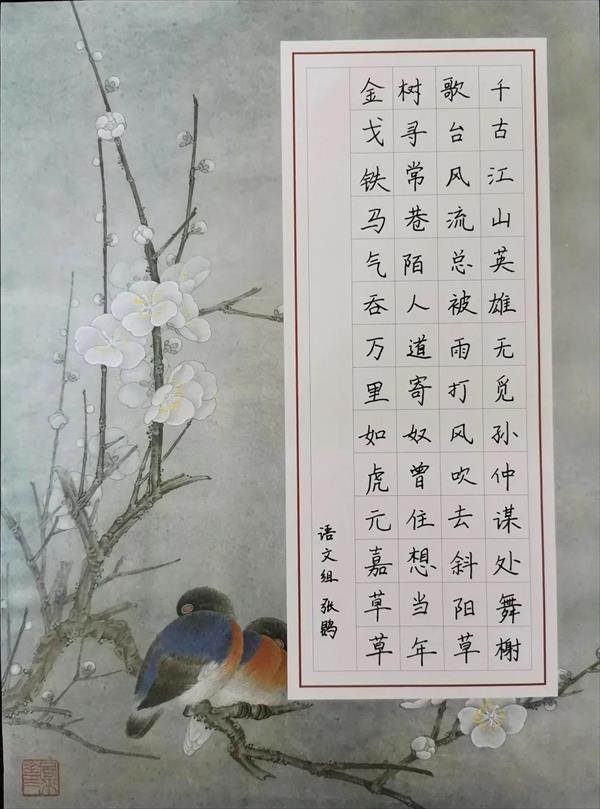 千古江山英雄无觅孙仲谋处舞榭
歌台风流总被雨打风吹去斜阳草
树寻常巷陌人道寄奴曾住想当年
金戈铁马气吞万里如虎元嘉草草
语文组 张鹍